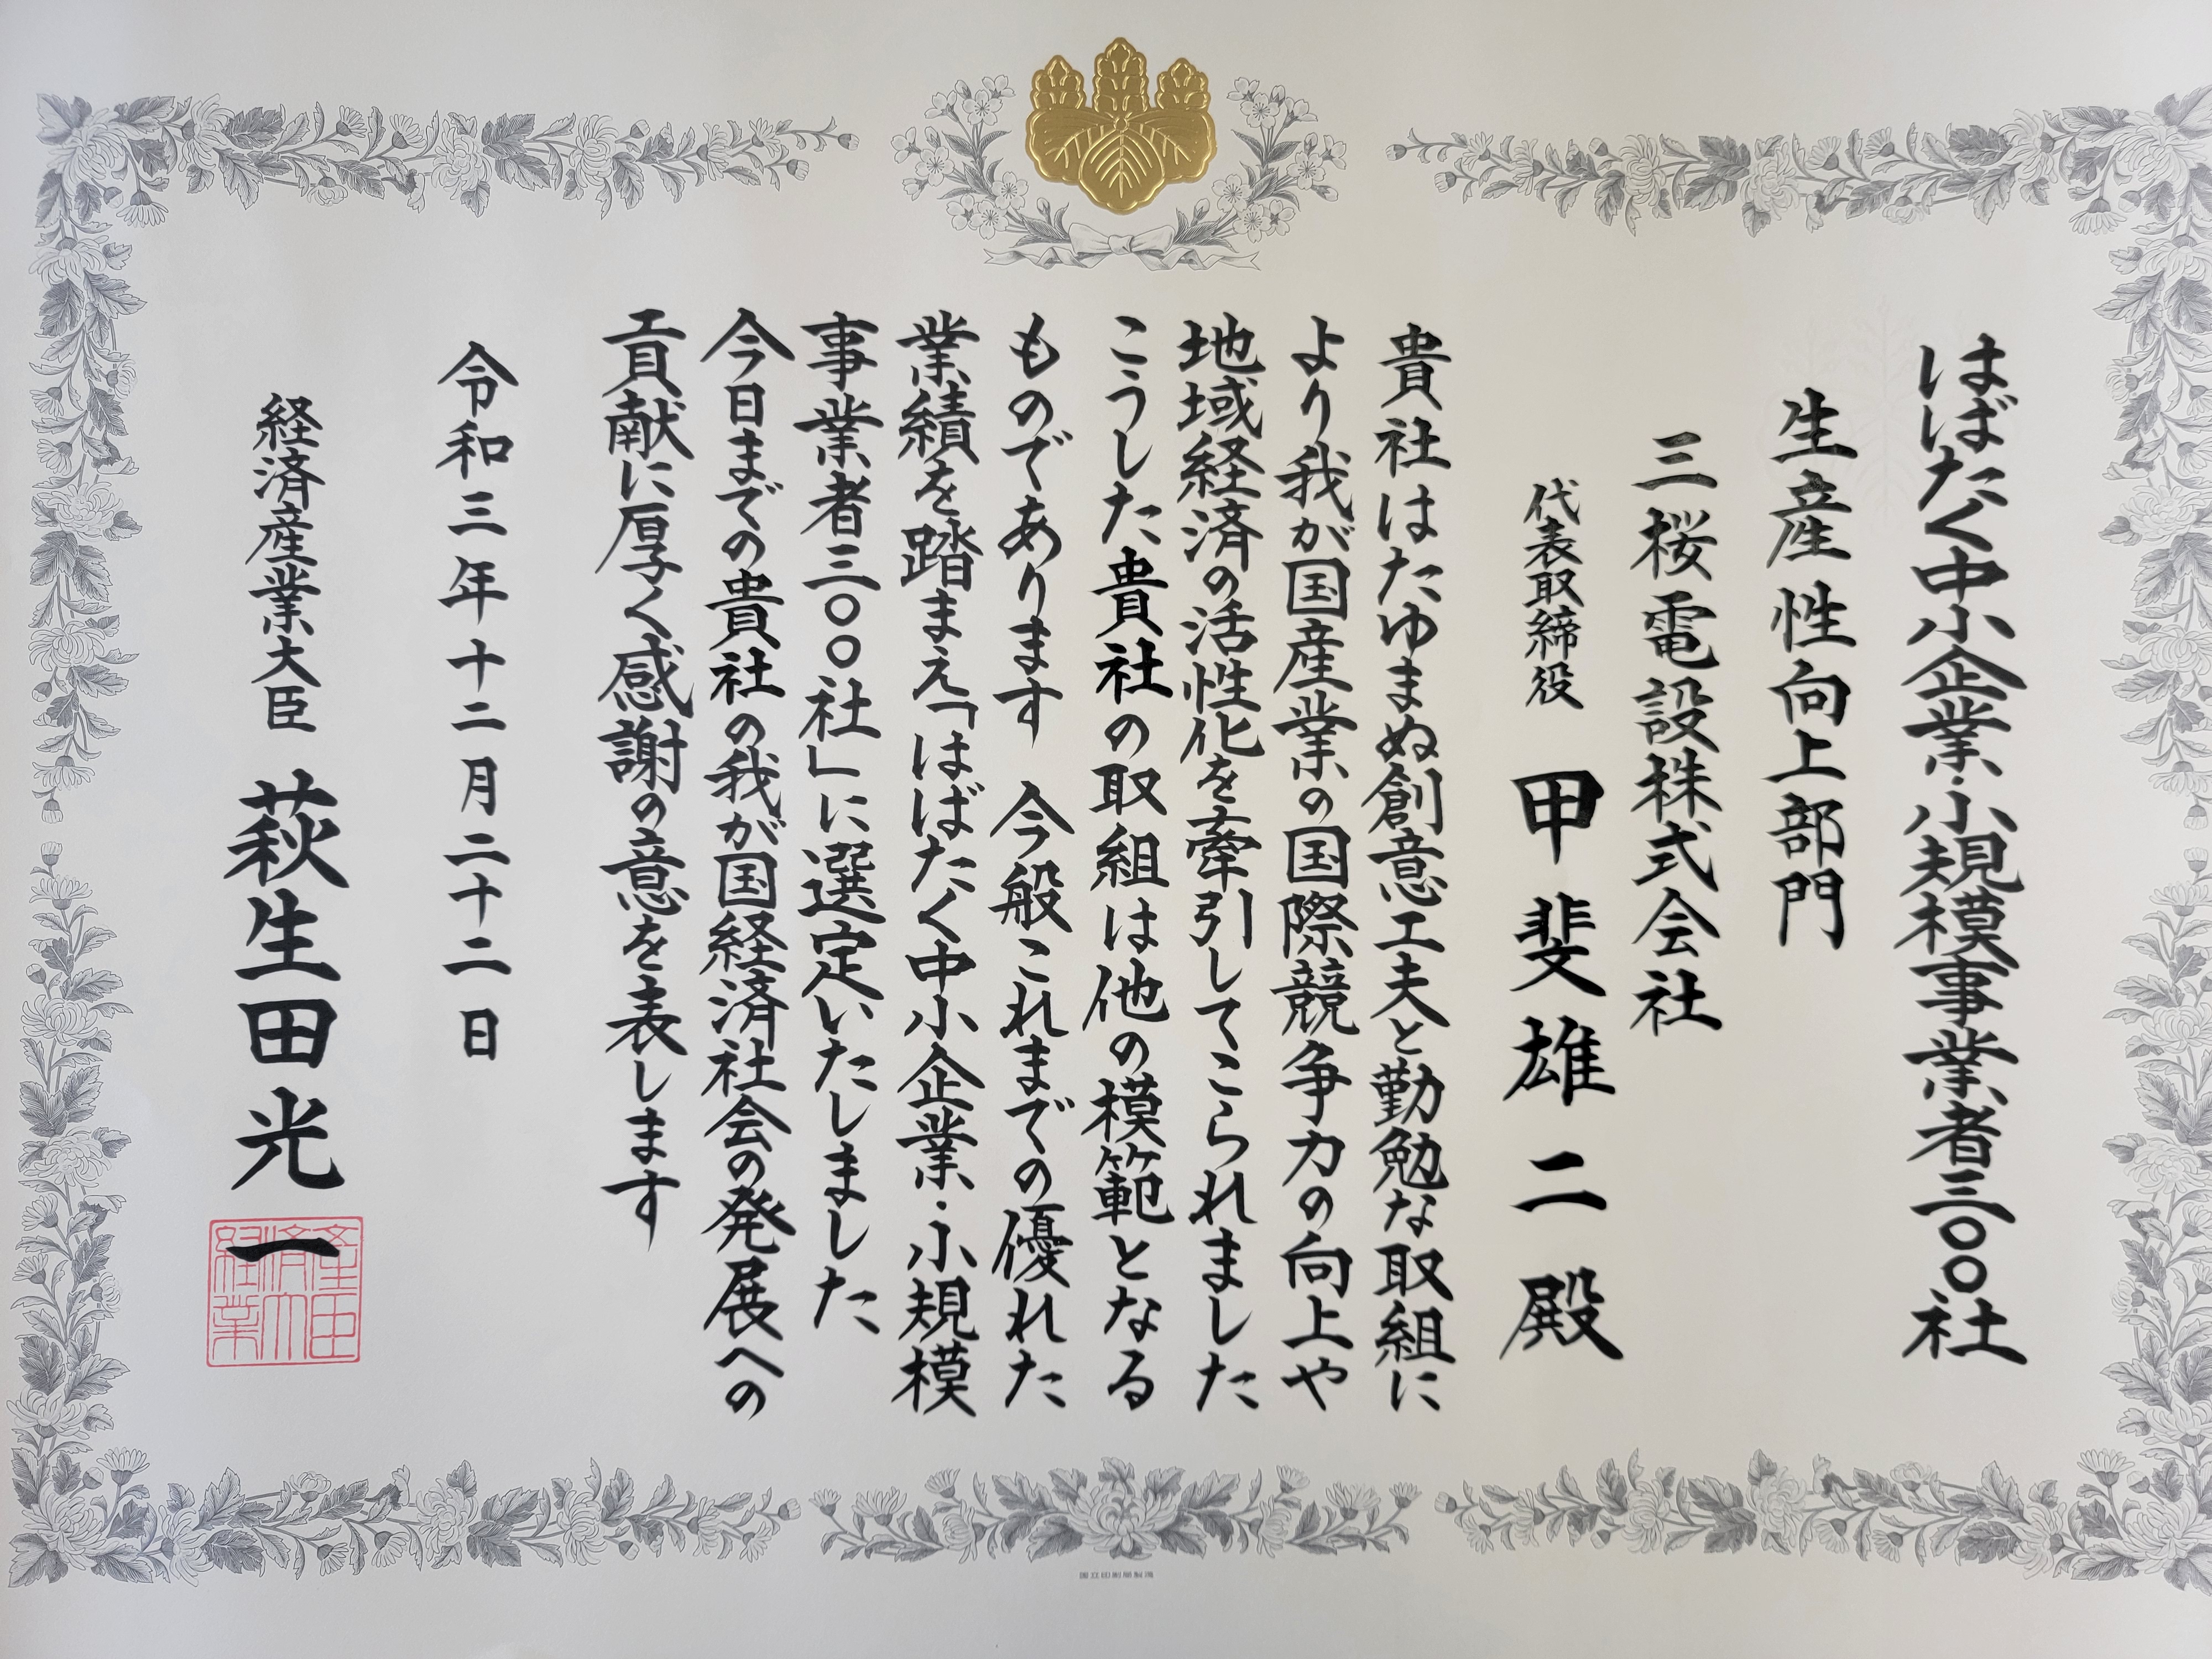 はばたく中小企業・小規模事業者三〇〇社
生産性向上部門
三桜電設株式会社
代表取締役 甲斐雄二殿
貴社はたゆまぬ創意工夫と勤勉な取組に
より我が国産業の国際競争力の向上や
地域経済の活性化を牽引してこられました
こうした貴社の取組は他の模範となる
ものであります 今般これまでの優れた
業績を踏まえ「はばたく中小企業・小規模
事業者三〇〇社」に選定いたしました
今日までの貴社の我が国経済社会の発展への
貢献に厚く感謝の意を表します
令和三年十二月二十二日
経済産業大臣 萩生田光一
経済産業大臣
国立印刷局製造